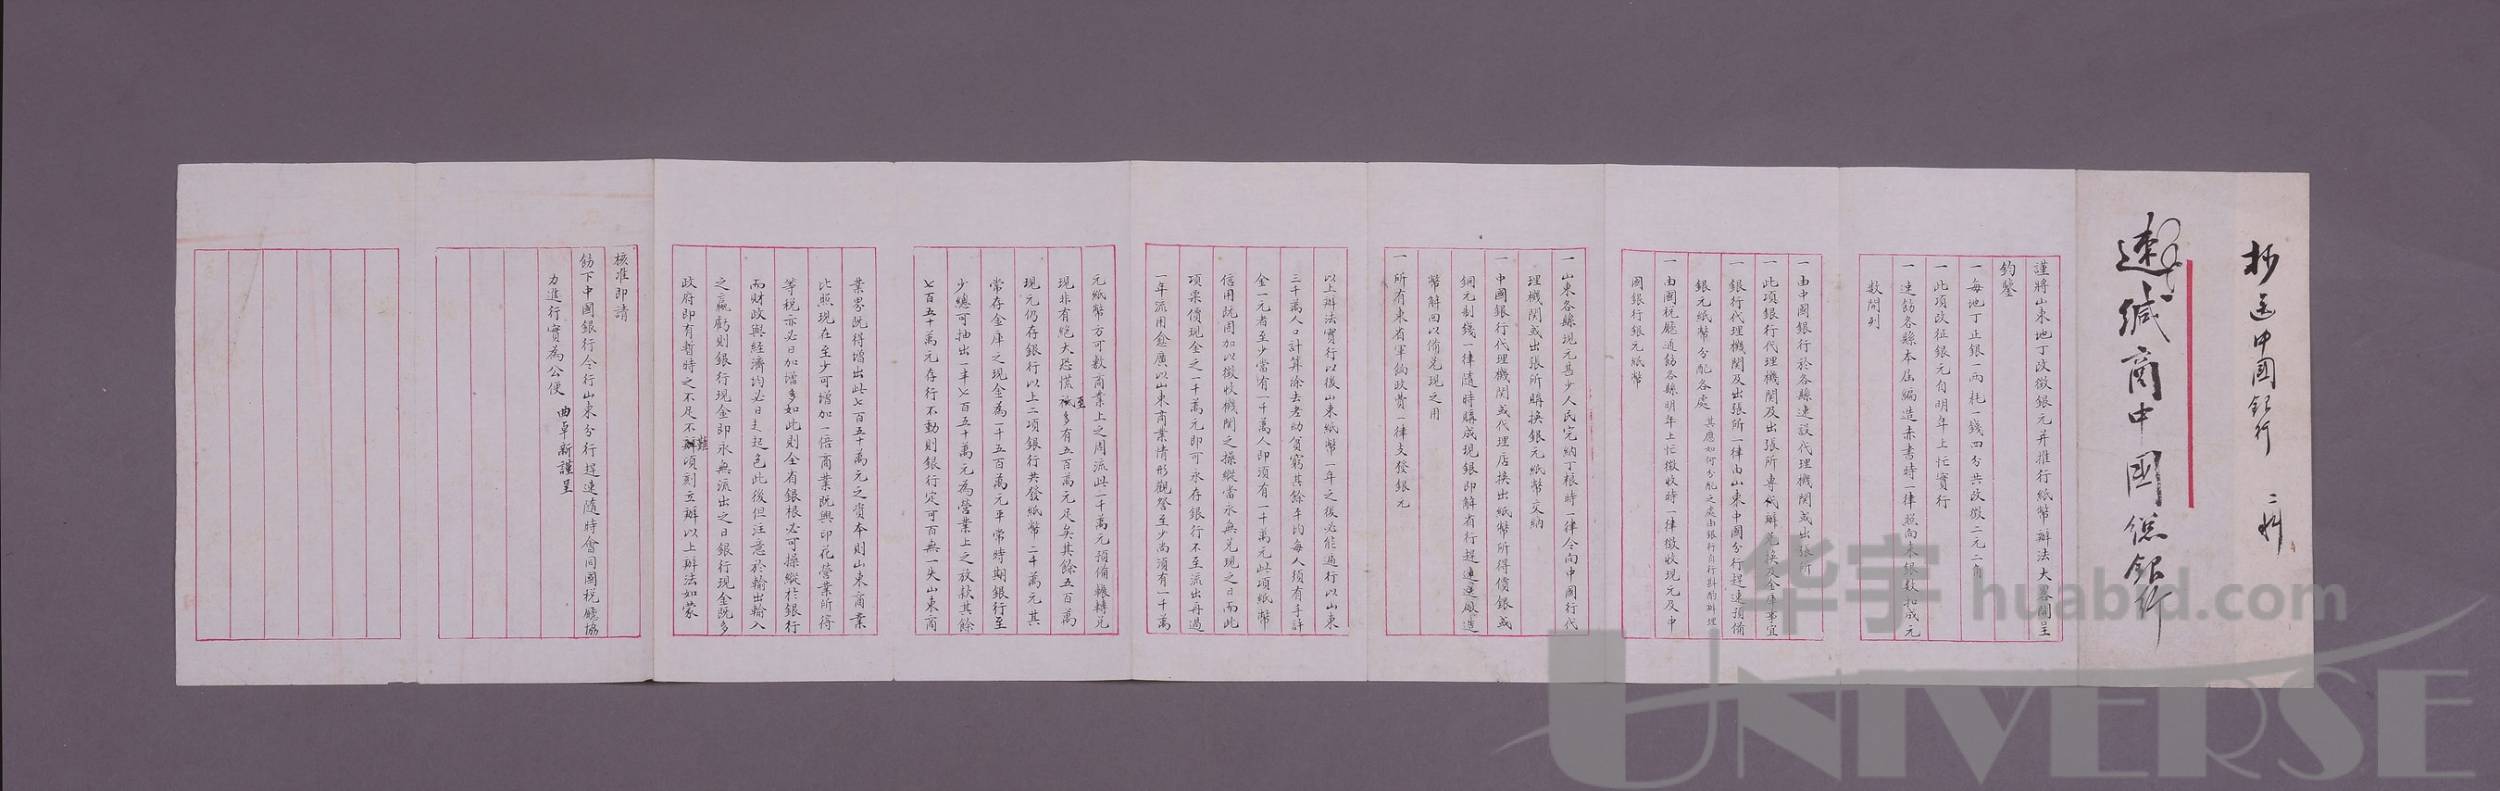 抄送中國銀行
速緘商中國總銀行
謹將山東地丁改徵銀元并推行紙幣辦法大畧開呈
鈞鑒
一每地丁正銀一兩耗一錢四分共改徵二元二角
一此項改征銀元自明年上忙實行
一速飭各縣本屆編造赤書時一律照向來銀数扣成元
数開列
一由中國銀行於各縣速設代理機関或出張所
一此項銀行代理機関及出張所專代辦兌換及金庫事宜
一銀行代理機関及出張所一律由山東中國分行趕速預備
銀元紙幣分配各處 其應如何分配之處由銀行自行斟酌辦理
一由國税廳通飭各縣明年上忙徵收時一律徵收現元及中
國銀行銀元紙幣
一山東各縣現元甚少人民完納丁粮時一律令向中國行代
理機関或出張所購換銀元紙幣交納
一中國銀行代理機関或代理店換出紙幣所得價銀或
銅元制錢一律隨時購成現銀即解省行趕速運廠鑄造
幣解回以備兌現之用
一所有東省軍餉政費一律支發銀元
以上辦法實行以後山東紙幣一年之後必能通行以山東
三千萬人口計算除去老幼貧窮其餘平均每人須有手許
金一元者至少當有一千萬人即須有一千萬元此項紙幣
信用既周加以徵收機関之操縱當永無兌現之日而此
項票價現金之一千萬元即可永存銀行不至流出再過
一年流用愈廣以山東商業情形觀詧至少尚須有一千萬
元紙幣方可敷商業上之周流此一千萬元預備輾轉兌
現非有絕大恐慌至多有五百萬元足矣其餘五百萬
現元仍存銀行以上二項銀行共發紙幣二千萬元其
常存金庫之現金為一千五百萬元平常時期銀行至
少總可抽出一半七百五十萬元為營業上之放欵其餘
七百五十萬元存行不動則銀行定可百無一失山東商
業界既得增出此七百五十萬元之資本則山東商業
比照現在至少可增加一倍商業既興印花營業所得
等税亦必日加增多如此則全省銀根必可操縱於銀行
而財政與經濟均必日走起色此後但注意於輸出輸入
之贏虧則銀行現金即永無流出之日銀行現金既多
政府即有暫時之不足不難頃刻立辦以上辦法如蒙
核准即請
飭下中國銀行令行山東分行趕速隨時會同國税廳協
力進行實為公便 曲卓新謹呈
华宇 huabid.com
UNIVERSE